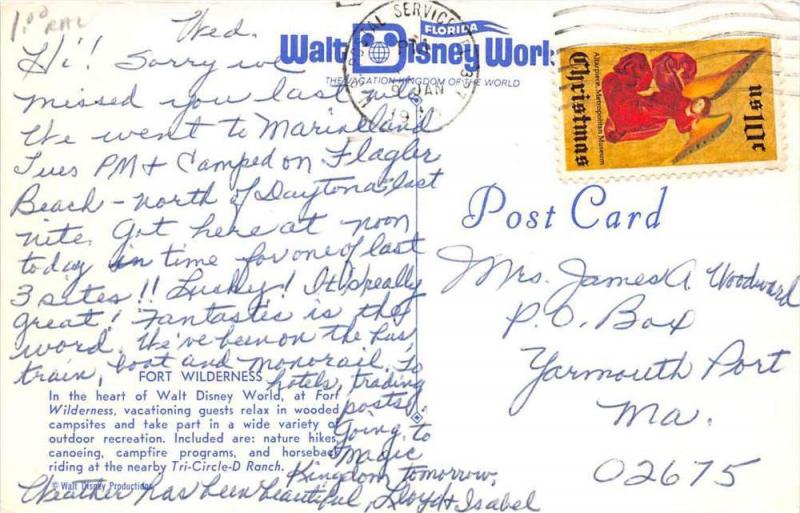 1.00
Wed.
Hi! Sorry we
missed you last nite.
We went to Marineland
Tues PM & Camped on Flagler
Beach - north of Daytona last
nite. Got here at noon
today in time for one of last
3 sites!! Lucky! It's really
great! Fantastic is the
word. We've been on the bus,
train, boat and monorail. To
hotels, trading
posts.
Going to
Magic
Kingdom tomorrow.
Weather has been beautiful, Lloyd & Isabel
FORT WILDERNESS
In the heart of Walt Disney World, at Fort
Wilderness, vacationing guests relax in wooded
campsites and take part in a wide variety of
outdoor recreation. Included are: nature hikes,
canoeing, campfire programs, and horseback
riding at the nearby Tri-Circle-D Ranch.
© Walt Disney Productions
FLORIDA
Walt Disney World
THE VACATION KINGDOM OF THE WORLD
POSTAL SERVICE
PM
JAN
Christmas
Altarpiece, Metropolitan Museum
US 10c
Post Card
Mrs. James A. Woodward
P.O. Box
Yarmouth Port
Ma.
02675